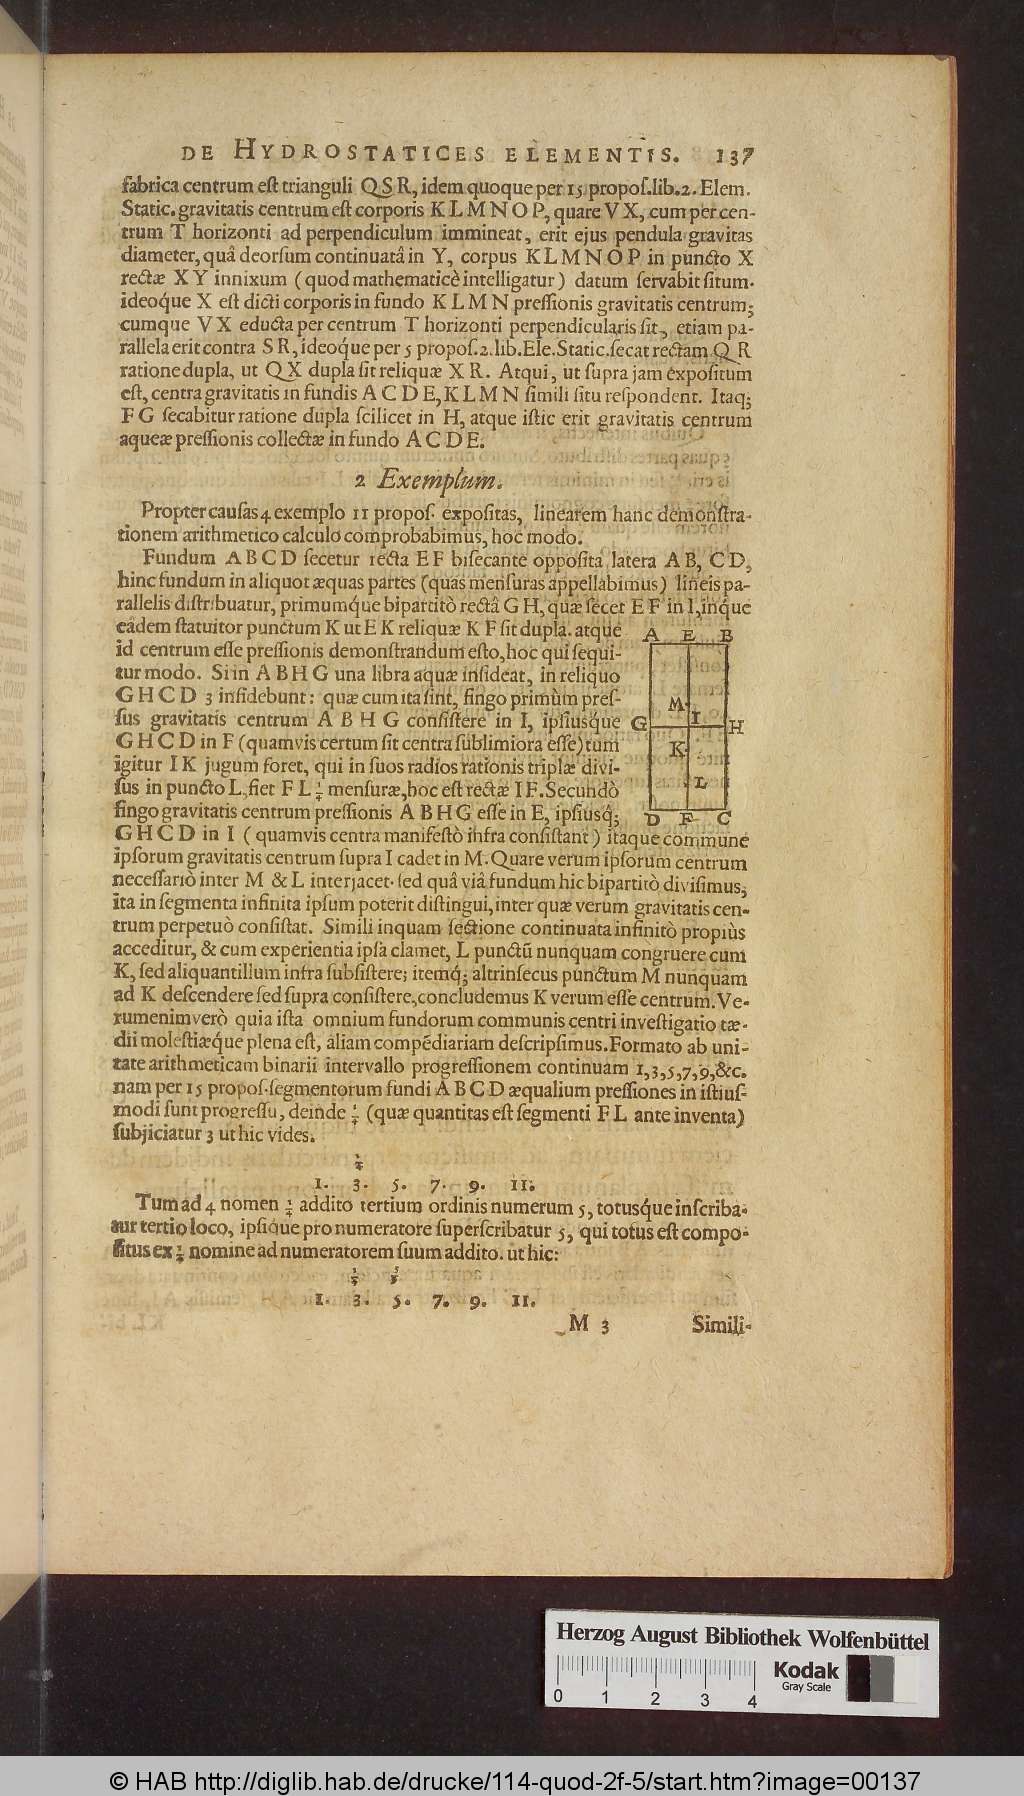 DE HYDROSTATICES ELEMENTIS. 137
fabrica centrum eſt trianguli QSR, idem quoque per 15 propoſ.lib.2. Elem.
Static. gravitatis centrum eſt corporis KLMNOP, quare VX, cum per cen-
trum T horizonti ad perpendiculum immineat, erit ejus pendula gravitas
diameter, quâ deorſum continuatâ in Y, corpus KLMNOP in puncto X
rectæ XY innixum (quod mathematicè intelligatur) datum ſervabit ſitum.
ideóque X eſt dicti corporis in fundo KLMN preſſionis gravitatis centrum;
cumque VX educta per centrum T horizonti perpendicularis ſit, etiam pa-
rallela erit contra SR, ideóque per 5 propoſ.2.lib.Ele.Static.ſecat rectam QR
ratione dupla, ut QX dupla ſit reliquæ XR. Atqui, ut ſupra jam expoſitum
eſt, centra gravitatis in fundis ACDE, KLMN ſimili ſitu reſpondent. Itaq;
FG ſecabitur ratione dupla ſcilicet in H, atque iſtic erit gravitatis centrum
aqueæ preſſionis collectæ in fundo ACDE.
2 Exemplum.
Propter cauſas 4 exemplo 11 propoſ. expoſitas, linearem hanc demonſtra-
tionem arithmetico calculo comprobabimus, hoc modo.
Fundum ABCD ſecetur recta EF biſecante oppoſita latera AB, CD,
hinc fundum in aliquot æquas partes (quas menſuras appellabimus) lineis pa-
rallelis diſtribuatur, primumq́ue bipartitò rectâ GH, quæ ſecet EF in I, inq́ue
eâdem ſtatuitor punctum K ut EK reliquæ KF ſit dupla. atque
id centrum eſſe preſſionis demonſtrandum eſto, hoc qui ſequi-
tur modo. Si in ABHG una libra aquæ inſideat, in reliquo
GHCD 3 inſidebunt: quæ cum ita ſint, fingo primùm preſ-
ſus gravitatis centrum ABHG conſiſtere in I, ipſiuſq́ue
GHCD in F (quamvis certum ſit centra ſublimiora eſſe) tum
igitur IK jugum foret, qui in ſuos radios rationis triplæ divi-
ſus in puncto L, fiet FL 1/4 menſuræ, hoc eſt rectæ IF. Secundò
fingo gravitatis centrum preſſionis ABHG eſſe in E, ipſiusq́;
GHCD in I (quamvis centra manifeſtò infra conſiſtant) itaque commune
ipſorum gravitatis centrum ſupra I cadet in M. Quare verum ipſorum centrum
neceſſariò inter M & L interjacet. ſed quâ viâ fundum hic bipartitò diviſimus,
ita in ſegmenta infinita ipſum poterit diſtingui, inter quæ verum gravitatis cen-
trum perpetuò conſiſtat. Simili inquam ſectione continuata infinitò propiùs
acceditur, & cum experientia ipſa clamet, L punctũ nunquam congruere cum
K, ſed aliquantillum infra ſubſiſtere; itemq́; altrinſecus punctum M nunquam
ad K deſcendere ſed ſupra conſiſtere, concludemus K verum eſſe centrum. Ve-
rumenimverò quia iſta omnium fundorum communis centri inveſtigatio tæ-
dii moleſtiæque plena eſt, aliam compẽdiariam deſcripſimus. Formato ab uni-
tate arithmeticam binarii intervallo progreſſionem continuam 1,3,5,7,9,&c.
nam per 15 propoſ. ſegmentorum fundi ABCD æqualium preſſiones in iſtiuſ-
modi ſunt progreſſu, deinde 1/4 (quæ quantitas eſt ſegmenti FL ante inventa)
ſubjiciatur 3 ut hic vides.
1/4
1. 3. 5. 7. 9. 11.
Tum ad 4 nomen 1/4 addito tertium ordinis numerum 5, totuſq́ue inſcriba-
tur tertio loco, ipſique pro numeratore ſuperſcribatur 5, qui totus eſt compo-
ſitus ex 1/4 nomine ad numeratorem ſuum addito. ut hic:
1/4 5/9
1. 3. 5. 7. 9. 11.
M 3 Simili-
A E B
M
G I H
K
L
D F C
Herzog August Bibliothek Wolfenbüttel
Kodak
Gray Scale
0 1 2 3 4
© HAB http://diglib.hab.de/drucke/114-quod-2f-5/start.htm?image=00137